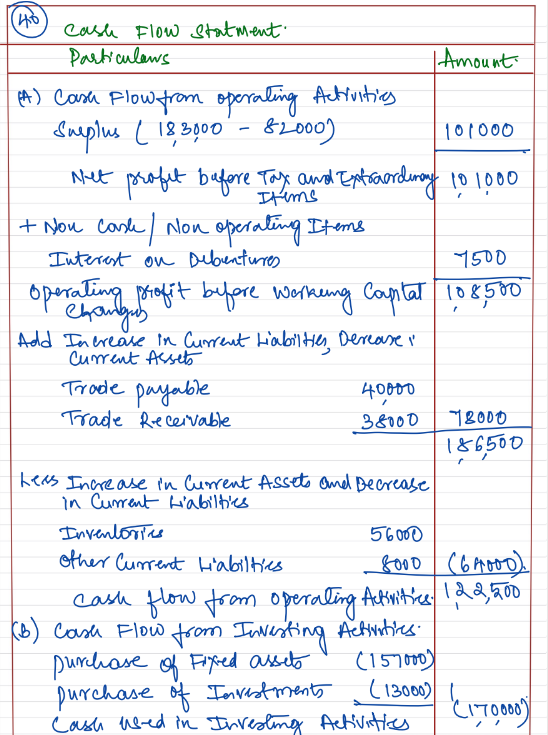 40
Cash Flow Statment.
Particulars Amount.
(A) Cash Flow from operating Activities
Surplus (183,000 - 82000) 101000
Net profit before Tax and Extraordinary 101000
Items
+ Non Cash / Non operating Items
Interest on Debentures 7500
Operating profit before working Capital 108,500
Changes
Add Increase in Current Liabilities, Derease
Current Assets
Trade payable 40,000
Trade Receivable 38000 78000
186,500
Less Increase in Current Assets and Decrease
in Current Liabilties
Inventories 56000
Other Current Liabilties 8000 (64000).
Cash flow from operating Activities. 122,500
(B) Cash Flow from Investing Activities.
Purchase of Fixed assets (157000)
Purchase of Investments (13000)
Cash used in Investing Activities (170,000)